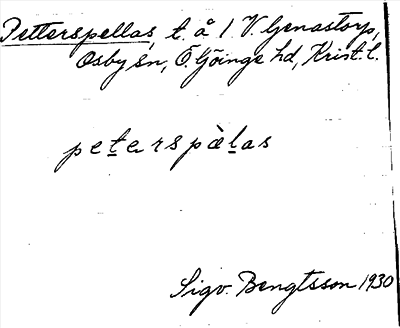 Petterspellas, t. å 1 V. Genastorp,
Osby sn, Ö. Göinge hd, Krist. l.
peterspàlas
Sigv. Bengtsson 1930